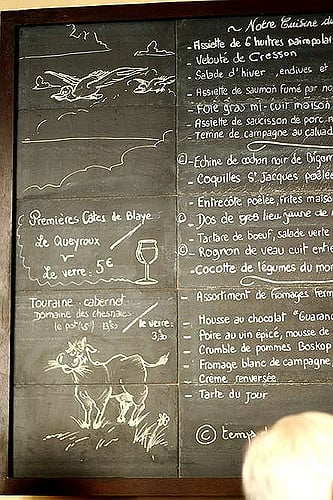 ~ Notre Cuisine du
- Assiette de 6 huîtres
- Velouté de Cresson
- Salade d'hiver, endives et
- Assiette de saumon fumé par no
- Foie gras mi-cuit maison
- Assiette de saucisson de porc n
- Terrine de campagne au calvad
© - Echine de cochon noir de Bigor
- Coquilles St Jacques poêlée
- Entrecôte poêlée, frites maiso
- Dos de gros lieu jaune de
- Tartare de boeuf, salade verte
© - Rognon de veau cuit entie
- Cocotte de légumes du mo
- Assortiment de fromages ferm
- Mousse au chocolat "Guaran
- Poire au vin épicé, mousse de
- Crumble de pommes Boskop
- Fromage blanc de campagne
- Crème renversée
- Tarte du jour
© temps
Premières Côtes de Blaye
Le Queyroux
Le verre: 5€
Touraine cabernet
Domaine des chesnaies
le verre:
3,50